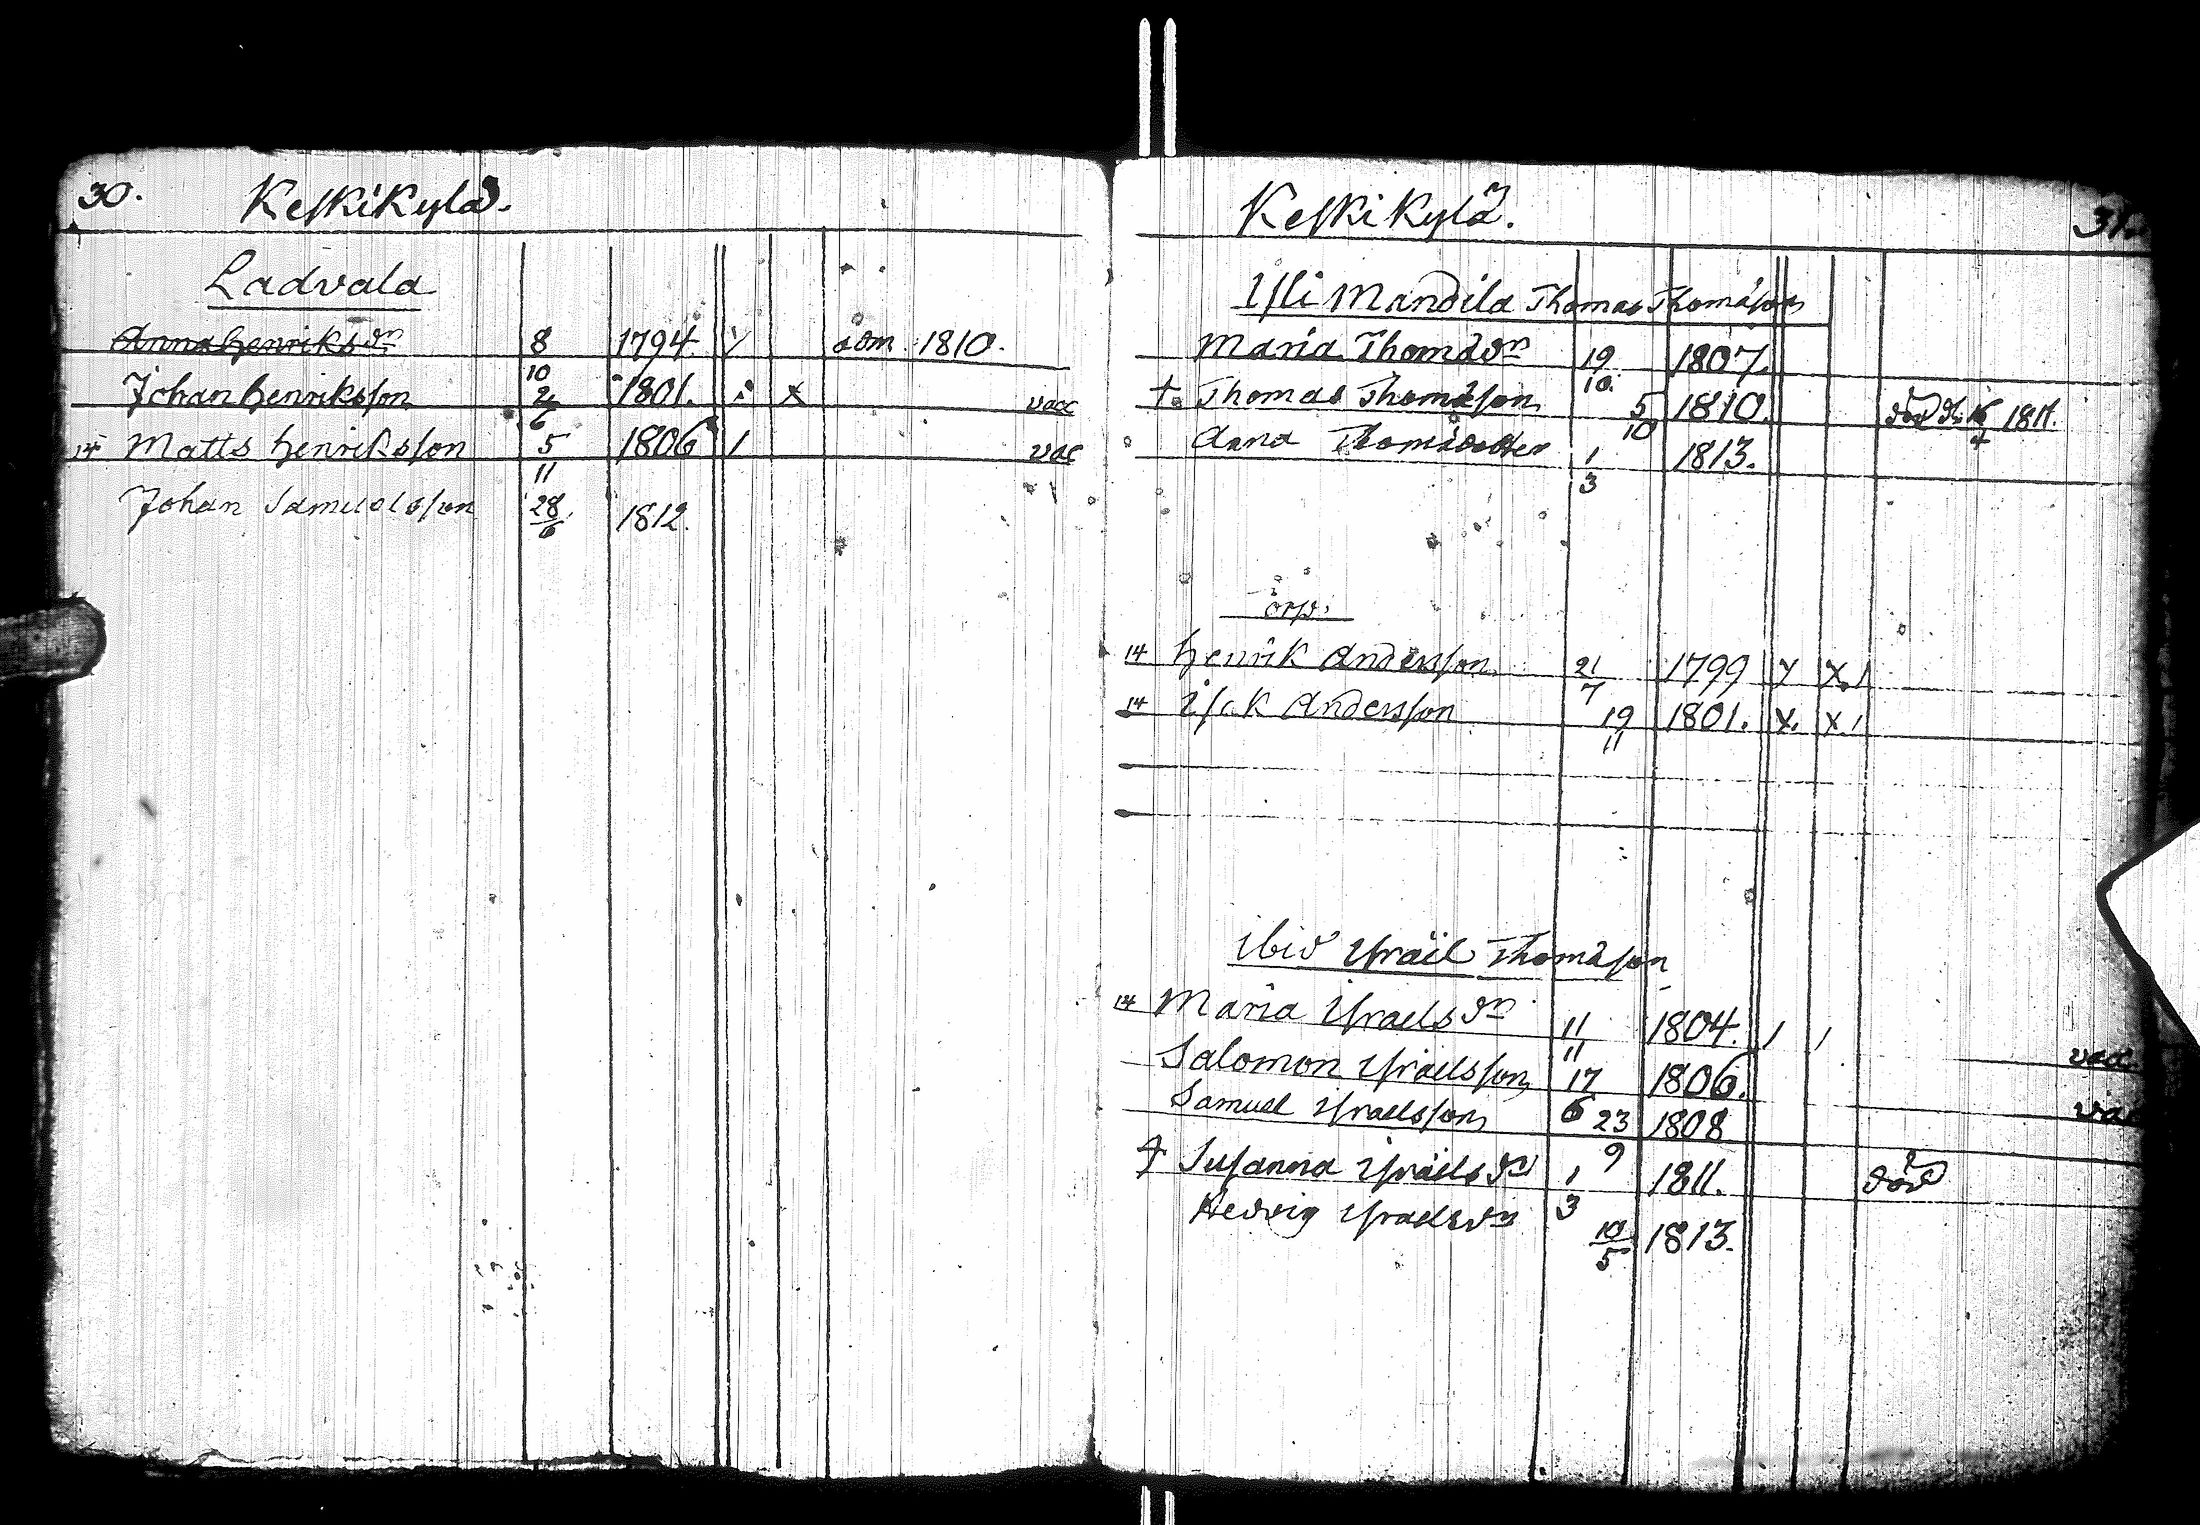 30. Keskikylä.
Ladvala
Anna Henriksdr 8/10 1794. y 1810.
Johan Henriksson 2/6 1801. x vacc
14 Matts Henriksson 5/11 1806 / vac
Johan Samuelsson 28/6 1812.
Keskikylä. 31.
Yli Mandila Thomas Thomasson
Maria Thomædr 19/10 1807.
+ Thomas Thomasson 5/10 1810. död 1811.
Anna Thomædotter 1/3 1813.
14 Henrik Andersson 21/7 1799 y x /
14 Isak Andersson 19/11 1801. x. x /
ibid Israël Thomasson
14 Maria Israelsdr 11/11 1804. / /
Salomon Israelsson 17/6 1806. vacc
Samuel Israelsson 23/9 1808 vac
+ Susanna Israëlsdr 1/3 1811. död
Hedvig Israelsdr 10/5 1813.